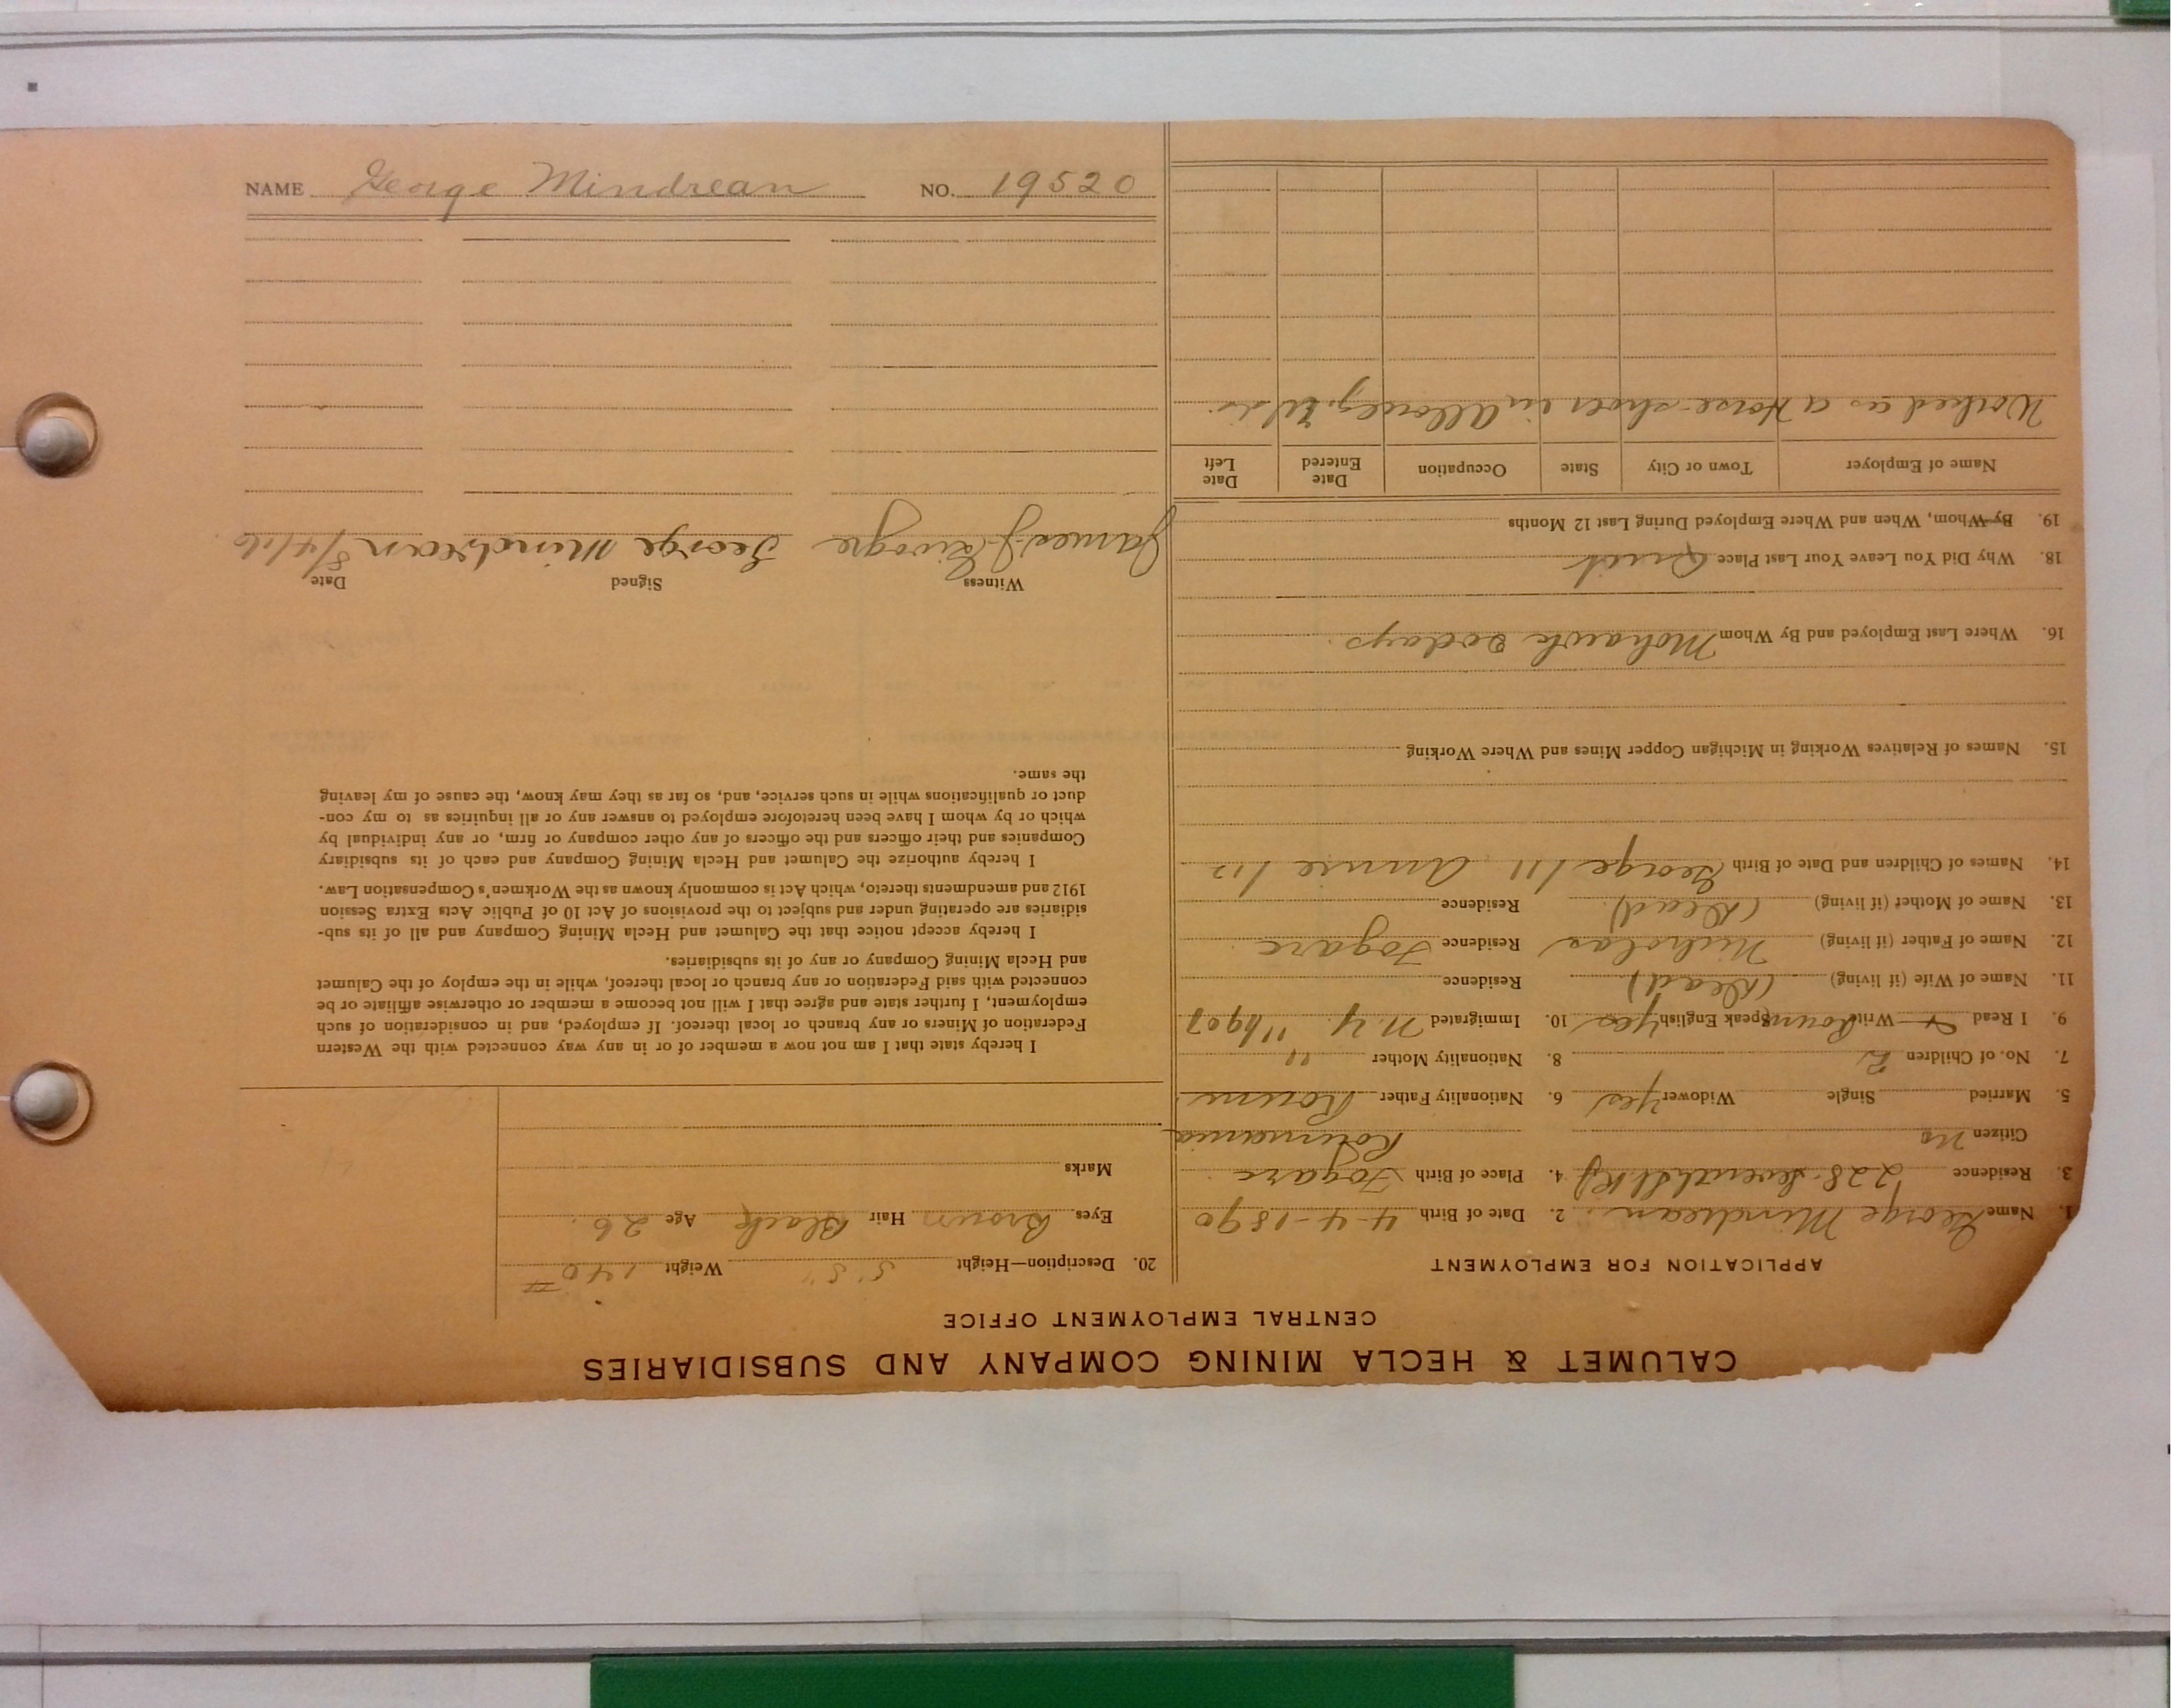 CALUMET & HECLA MINING COMPANY AND SUBSIDIARIES
CENTRAL EMPLOYMENT OFFICE
APPLICATION FOR EMPLOYMENT
1. Name George Mindrean 2. Date of Birth 4-4-1890
3. Residence 228 Seventh St 4. Place of Birth Fogarc
Citizen No Roumania
5. Married Single Widower yes 6. Nationality Father Roum
7. No. of Children 2 8. Nationality Mother "
9. I Read & Write Roum Speak English yes 10. Immigrated N.Y. 1907
11. Name of Wife (if living) (Dead) Residence
12. Name of Father (if living) Nicholas Residence Fogarc
13. Name of Mother (if living) (Dead) Residence
14. Names of Children and Date of Birth George /11 Annie /12
15. Names of Relatives Working in Michigan Copper Mines and Where Working
16. Where Last Employed and By Whom Mohawk 20 days
18. Why Did You Leave Your Last Place Quit
19. By Whom, When and Where Employed During Last 12 Months
Name of Employer Town or City State Occupation Date Entered Date Left
Worked as a Horse-shoer in Allouez,
20. Description—Height 5'5" Weight 140 #
Eyes Brown Hair Black Age 26
Marks
I hereby state that I am not now a member of or in any way connected with the Western
Federation of Miners or any branch or local thereof. If employed, and in consideration of such
employment, I further state and agree that I will not become a member or otherwise affiliate or be
connected with said Federation or any branch or local thereof, while in the employ of the Calumet
and Hecla Mining Company or any of its subsidiaries.
I hereby accept notice that the Calumet and Hecla Mining Company and all of its sub-
sidiaries are operating under and subject to the provisions of Act 10 of Public Acts Extra Session
1912 and amendments thereto, which Act is commonly known as the Workmen's Compensation Law.
I hereby authorize the Calumet and Hecla Mining Company and each of its subsidiary
Companies and their officers and the officers of any other company or firm, or any individual by
which or by whom I have been heretofore employed to answer any or all inquiries as to my con-
duct or qualifications while in such service, and, so far as they may know, the cause of my leaving
the same.
Witness Signed Date
James J. George Mindrean 8/4/16
NAME George Mindrean NO. 19520